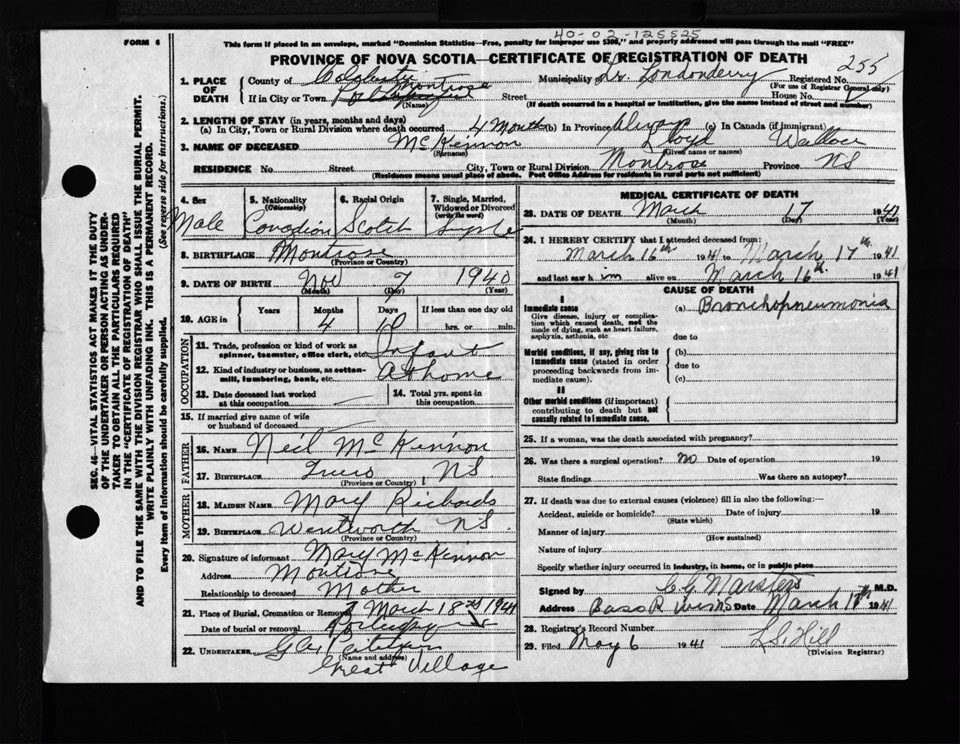 40-02-125525
FORM 6
This form if placed in an envelope, marked "Dominion Statistics—Free, penalty for improper use $300," and properly addressed will pass through the mail "FREE"
PROVINCE OF NOVA SCOTIA—CERTIFICATE OF REGISTRATION OF DEATH
1. PLACE OF DEATH
County of Colchester
Municipality of Londonderry
Registered No. 255
(For use of Registrar General only)
If in City or Town Montrose
(Name)
Street
House No.
(If death occurred in a hospital or institution, give the name instead of street and number)
2. LENGTH OF STAY (in years, months and days)
(a) In City, Town or Rural Division where death occurred 4 Month (b) In Province Always (c) In Canada (if immigrant)
3. NAME OF DECEASED McKinnon Lloyd Wallace
(Surname) (Given name or names)
RESIDENCE No. Street City, Town or Rural Division Montrose Province NS
(Residence means usual place of abode. Post Office Address for residents in rural parts not sufficient)
4. Sex
Male
5. Nationality
(Citizenship)
Canadian
6. Racial Origin
Scotch
7. Single, Married, Widowed or Divorced
(write the word)
Single
8. BIRTHPLACE Montrose
(Province or Country)
9. DATE OF BIRTH Nov 7 1940
(Month) (Day) (Year)
10. AGE in
Years
Months 4
Days 10
If less than one day old
hrs. or min.
OCCUPATION
11. Trade, profession or kind of work as spinner, teamster, office clerk, etc. Infant
12. Kind of industry or business, as cotton-mill, lumbering, bank, etc. At home
13. Date deceased last worked at this occupation
14. Total yrs. spent in this occupation
15. If married give name of wife or husband of deceased
FATHER
16. NAME Neil McKinnon
17. BIRTHPLACE Truro NS
(Province or Country)
MOTHER
18. MAIDEN NAME Mary Richards
19. BIRTHPLACE Wentworth NS.
(Province or Country)
20. Signature of informant Mary McKinnon
Address Montrose
Relationship to deceased Mother
21. Place of Burial, Cremation or Removal
Date of burial or removal March 18 1941
22. UNDERTAKER
(Name and address)
Great Village
MEDICAL CERTIFICATE OF DEATH
23. DATE OF DEATH March 17 1941
(Month) (Day) (Year)
24. I HEREBY CERTIFY that I attended deceased from:
March 16th 1941 to March 17th 1941
and last saw h im alive on March 16th 1941
CAUSE OF DEATH
I
Immediate cause
Give disease, injury or complication which caused death, not the mode of dying, such as heart failure, asphyxia, asthenia, etc
(a) Bronchopneumonia
due to
Morbid conditions, if any, giving rise to immediate cause (stated in order proceeding backwards from immediate cause).
(b)
due to
(c)
II
Other morbid conditions (if important) contributing to death but not causally related to immediate cause
25. If a woman, was the death associated with pregnancy?
26. Was there a surgical operation? no Date of operation 19
State findings Was there an autopsy?
27. If death was due to external causes (violence) fill in also the following:—
Accident, suicide or homicide? Date of injury 19
(State which)
Manner of injury
(How sustained)
Nature of injury
Specify whether injury occurred in industry, in home, or in public place
Signed by M.D.
Address Bass R Date March 1941
28. Registrar's Record Number
29. Filed May 6 1941 Hill
(Division Registrar)
SEC. 46—VITAL STATISTICS ACT MAKES IT THE DUTY
OF THE UNDERTAKER OR PERSON ACTING AS UNDER-
TAKER TO OBTAIN ALL THE PARTICULARS REQUIRED
IN THE "CERTIFICATE OF REGISTRATION OF DEATH"
AND TO FILE THE SAME WITH THE DIVISION REGISTRAR WHO SHALL ISSUE THE BURIAL PERMIT.
WRITE PLAINLY WITH UNFADING INK. THIS IS A PERMANENT RECORD.
Every item of information should be carefully supplied. (See reverse side for instructions.)